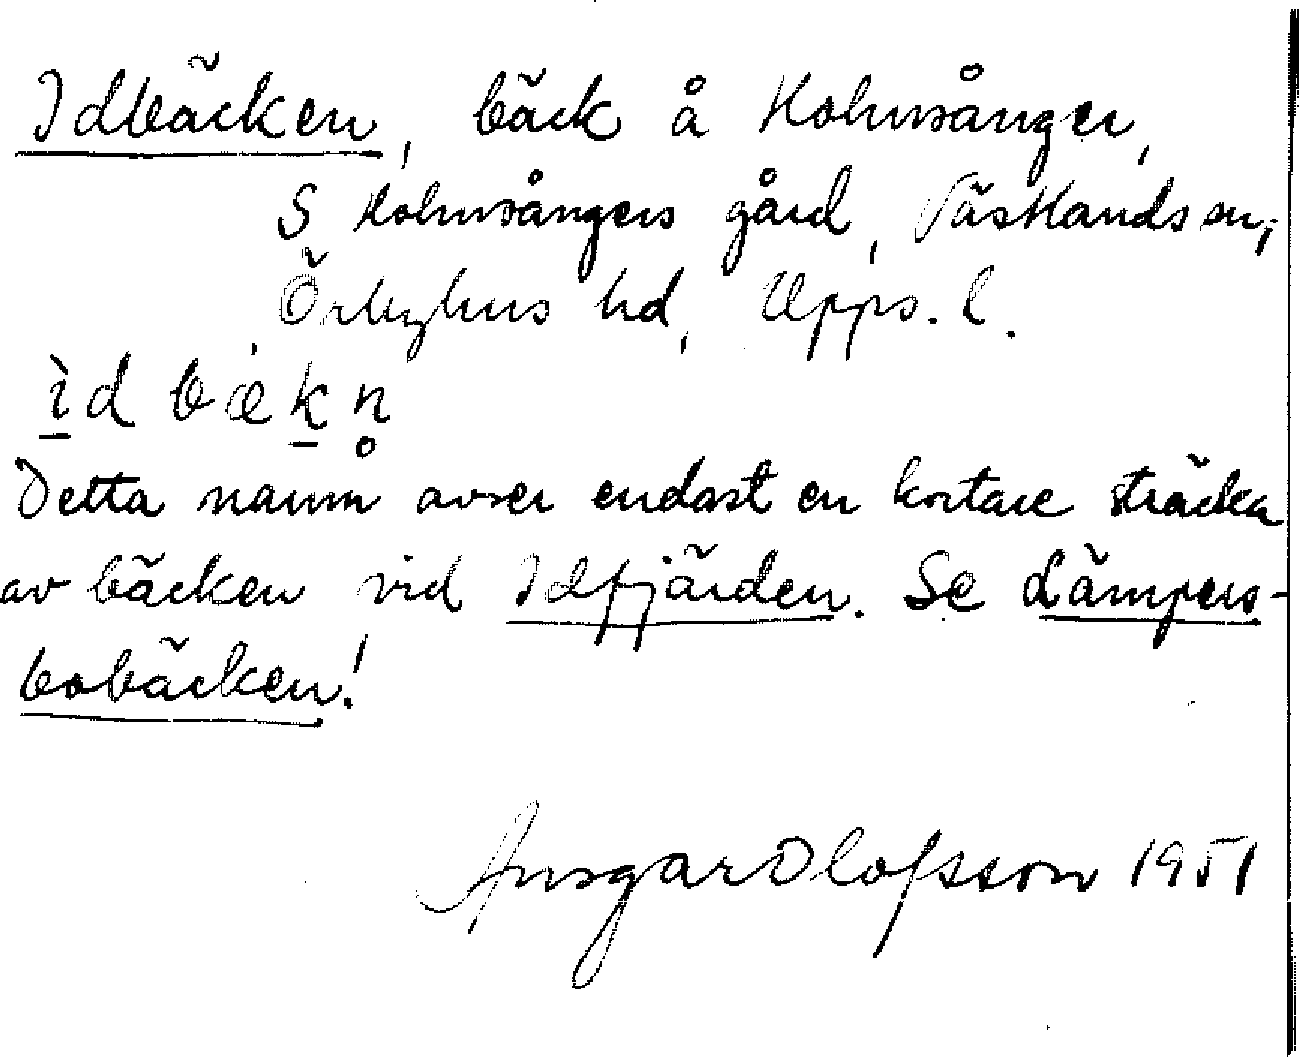 Idbäcken, bäck å Holmsånger,
S Holmsångers gård, Västlands sn,
Örbyhus hd, Upps. l.
ìd bækn̥
Detta namn avser endast en kortare sträcka
av bäcken vid Idfjärden. Se Lämpers-
bobäcken!
Ansgar Olofsson 1951